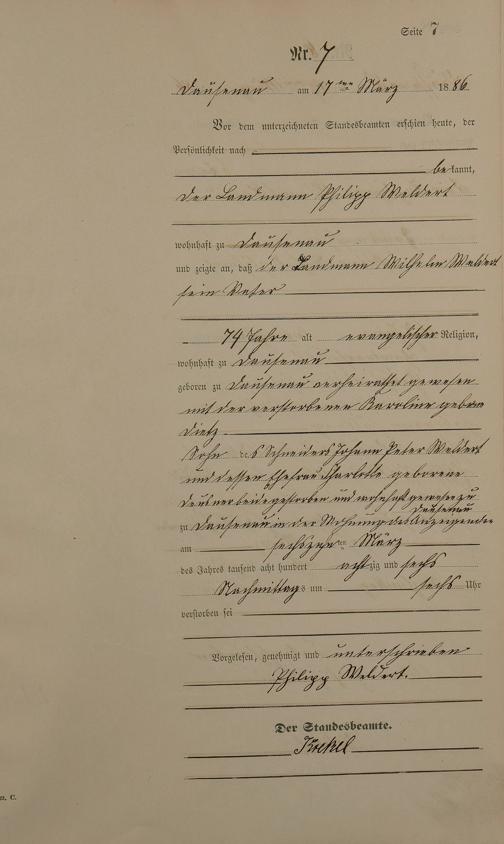 Seite 7
Nr. 7
Dausenau am 17ten März 1886
Vor dem unterzeichneten Standesbeamten erschien heute, der
Persönlichkeit nach
bekannt,
der Landmann Philipp Weldert
wohnhaft zu Dausenau
und zeigte an, daß der Landmann Wilhelm Weldert
sein Vater
74 Jahre alt evangelischer Religion,
wohnhaft zu Dausenau
geboren zu Dausenau verheirathet gewesen
mit der verstorbenen Karoline geborne
Dietz
Sohn des Schneiders Johann Peter Weldert
und dessen Ehefrau Charlotte geborene
beide gestorben und wohnhaft gewesen zu
Dausenau
zu Dausenau in der Wohnung des Anzeigenden
am sechszehnten März
des Jahres tausend acht hundert achtzig und sechs
Nachmittags um sechs Uhr
verstorben sei
Vorgelesen, genehmigt und unterschrieben
Philipp Weldert.
Der Standesbeamte.
C.